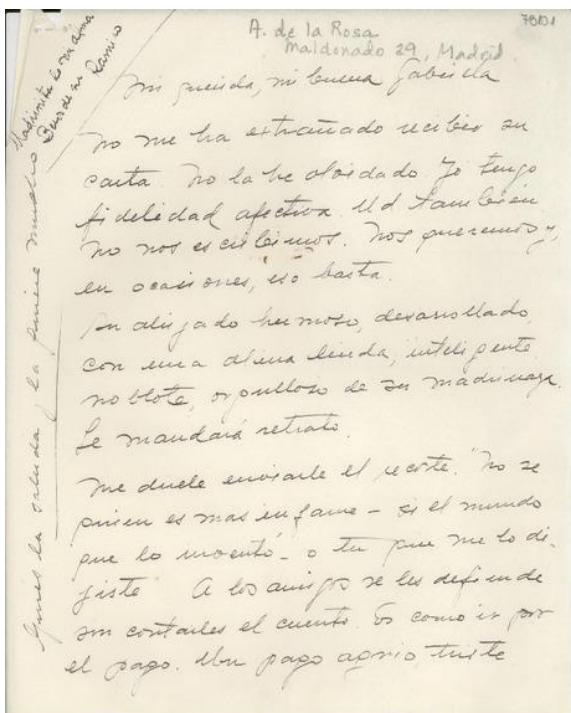 A. de la Rosa
Maldonado 29, Madrid
78101
Mi querida, mi buena Gabriela
No me ha extrañado recibir su
carta. No la he olvidado. Yo tengo
fidelidad afectiva. Ud también
no nos escribimos. Nos queremos y,
en ocasiones, eso basta.
Su ahijado hermoso, desarrollado,
con una alma linda, inteligente
noblote, orgulloso de su madrinaza.
Le mandará retrato.
Me duele enviarle el recorte. "No se
quien es mas infame – si el mundo
que lo inventó – o tu que me lo di-
jiste A los amigos se les defiende
sin contarles el cuento. Es como ir por
el pago. Un pago agrio, triste
Ginés la saluda, la quiere mucho
Madrinita la
Besos de su Ramiro